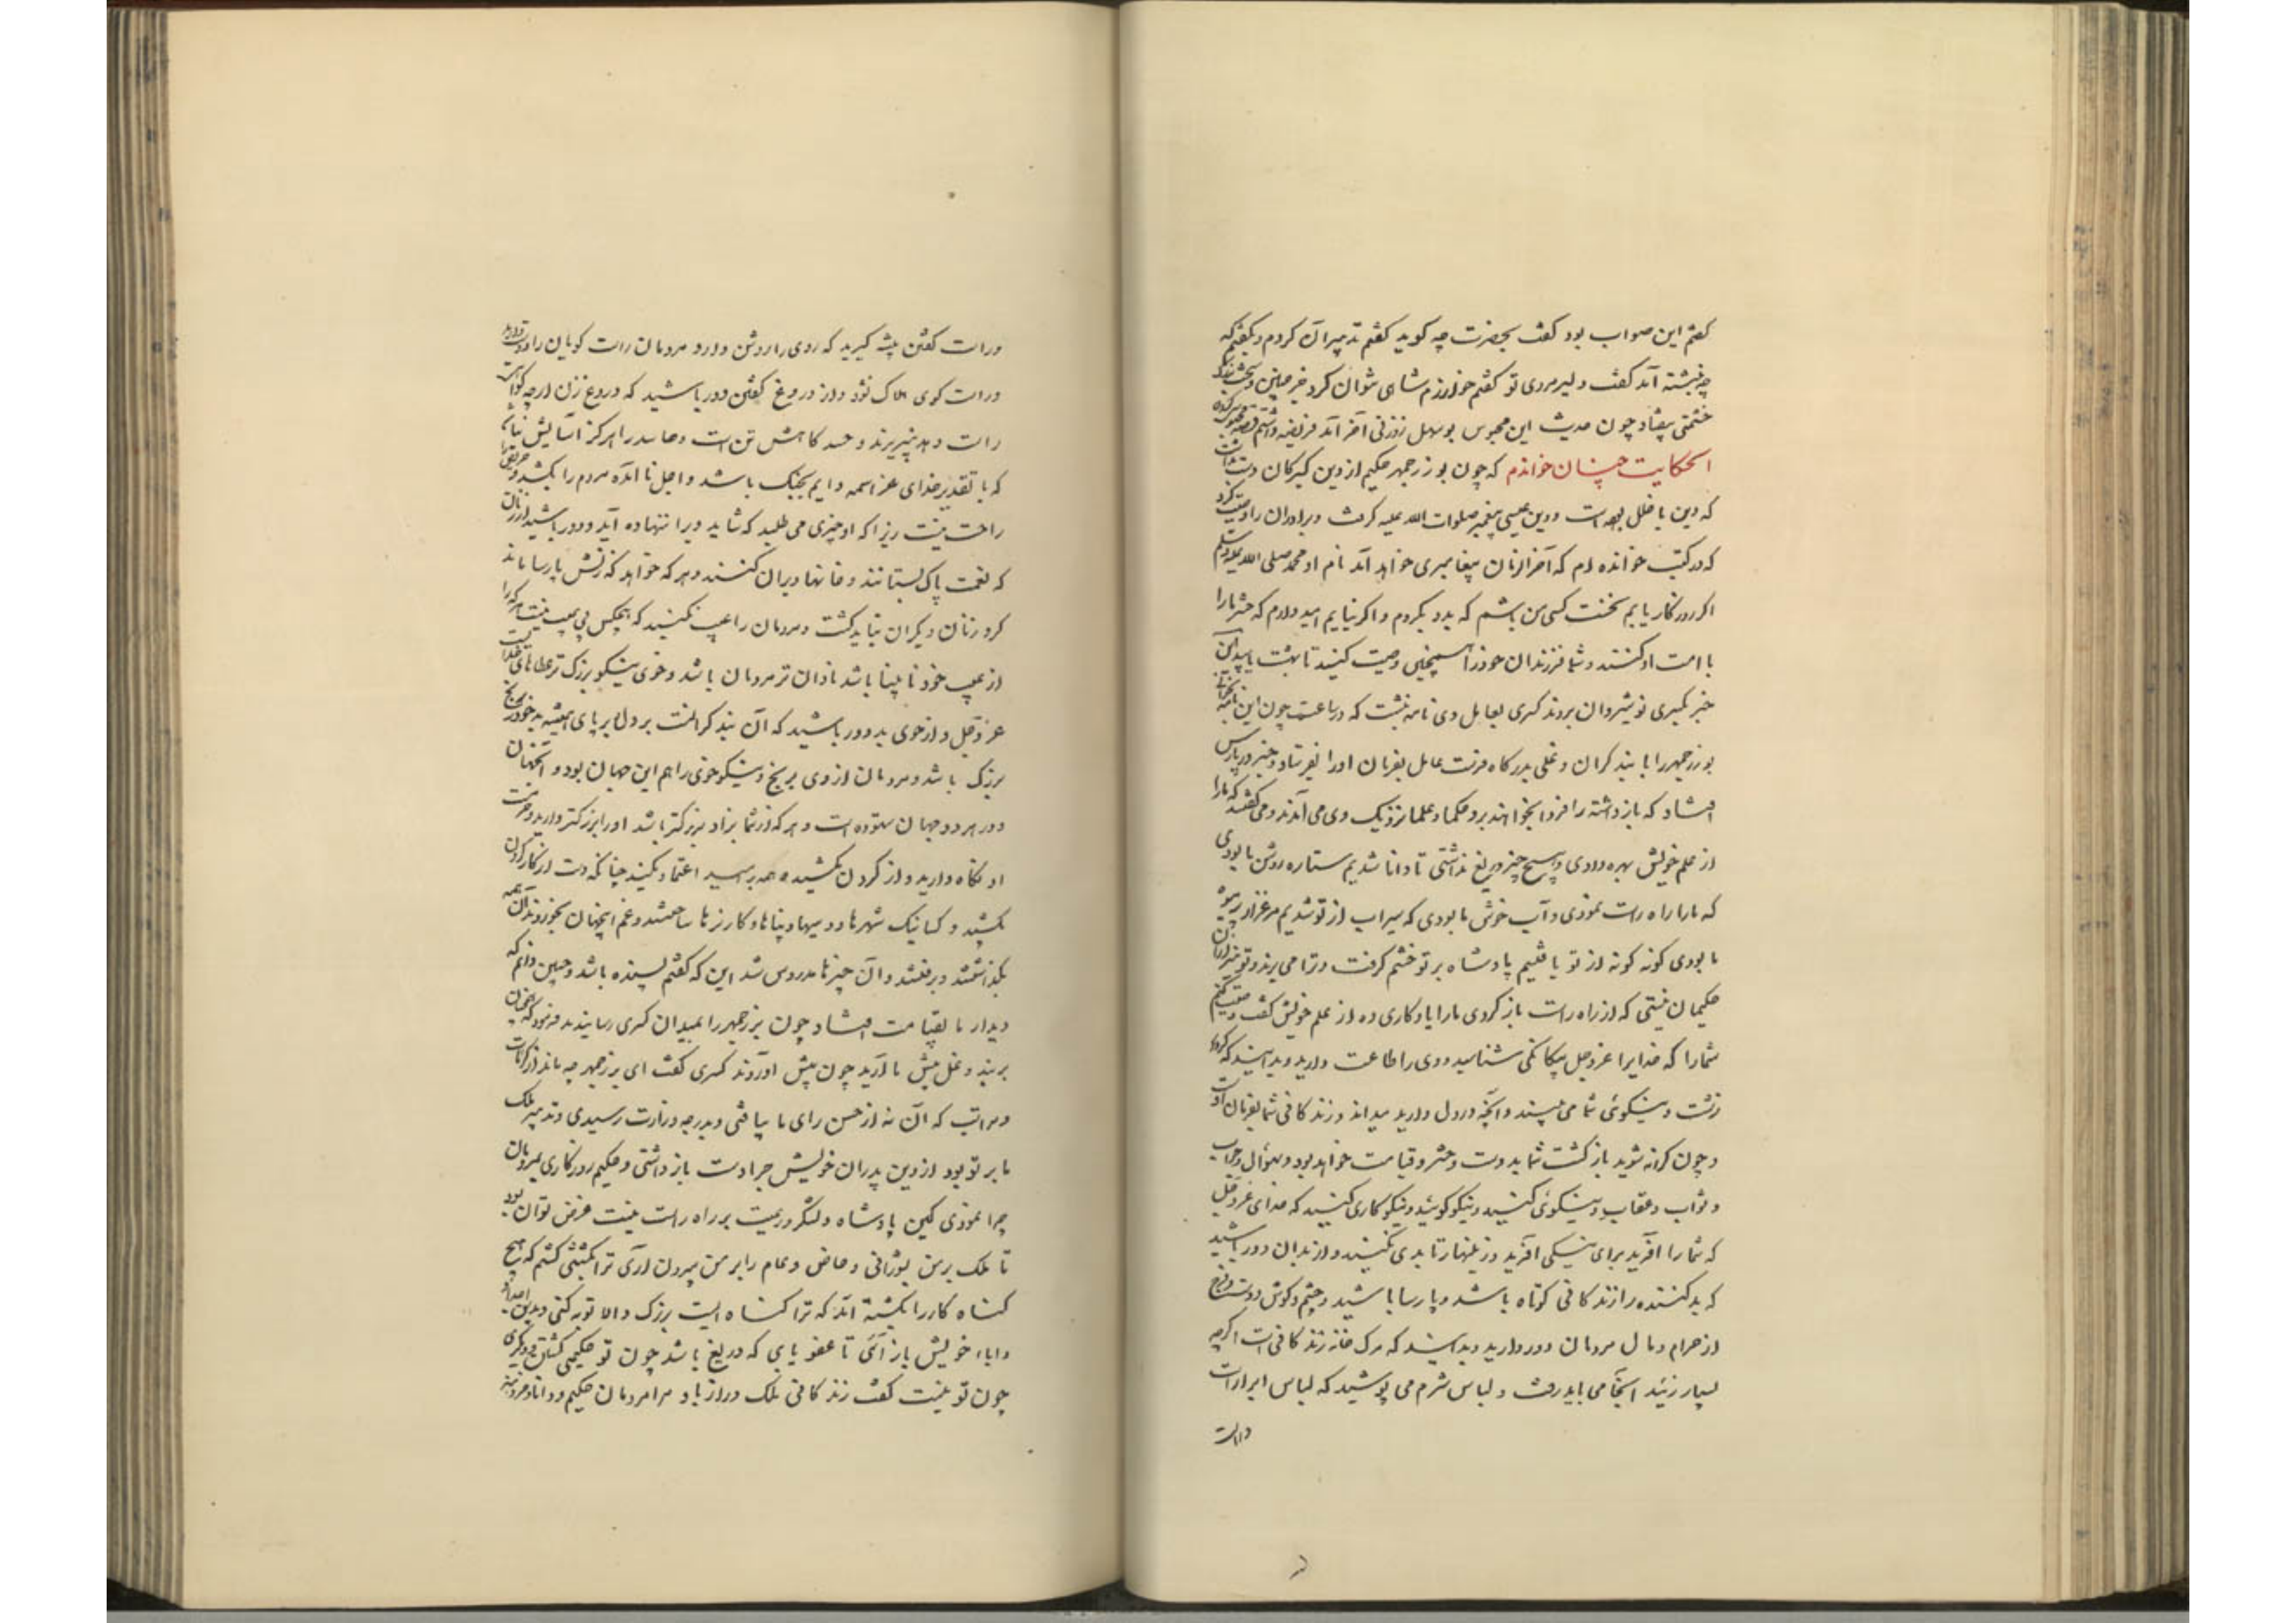 گفتم این صواب بود گفت بحضرت چه گوید گفتم تدبیر آن کردم و بگفتم که
چه نبشته آمد گفت دلیر مردی تو گفتم خوارزم شاهی نتوان کرد جز چنین و سخت بزرگ
حشمتی بیفتاد چون حدیث این محبوس بوسهل زوزنی آخر آمد فریضه داشتم قصه محبوس کردن
الحکایت چنان خواندم که چون بوزرجمهر حکیم از دین گبرکان دست بداشت
که دین با خلل بوده است و دین عیسی پیغمبر صلوات الله علیه گرفت و برادران را وصیت کرد
که در کتب خوانده ام که آخر الزمان پیغامبری خواهد آمد نام او محمد صلی الله علیه و سلم
اگر روزگار یابم نخست کسی من باشم که بدو بگروم و اگر نیابم امیدوارم که حشر ما را
با امت او کنند و شما فرزندان خود را همچنین وصیت کنید تا بهشت یابید این
خبر بکسری نوشیروان بردند کسری بعامل وی نامه نبشت که در ساعت چون این نامه بخوانی
بوزرجمهر را با بند گران و غلی بدرگاه فرست عامل بفرمان او را بفرستاد و خبر در پارس
افتاد که بازداشته را فردا بخواهند برد حکما و علما نزدیک وی می آمدند و می گفتند که ما را
از علم خویش بهره دادی و هیچ چیز دریغ نداشتی تا دانا شدیم ستاره روشن ما بودی
که ما را راه راست نمودی و آب خوش ما بودی که سیراب از تو شدیم مرغزار پر میوه
ما بودی گونه گونه از تو یافتیم پادشاه بر تو خشم گرفت و ترا می برند و تو نیز از آن
حکیمان نیستی که از راه راست باز گردی ما را یادگاری ده از علم خویش گفت وصیت کنم
شما را که خدایرا عز و جل بیگانگی شناسید و وی را طاعت دارید و بدانید که کردار
زشت و نیکوی شما می بیند و آنچه در دل دارید میداند و زندگانی شما بفرمان اوست
و چون کرانه شوید بازگشت شما بدوست و حشر و قیامت خواهد بود و سوال و جواب
و ثواب و عقاب و نیکوئی کنید و نیکو گوئید و نیکوکاری کنید که خدای عز و جل
که شما را آفرید برای نیکی آفرید و زینهار تا بدی نکنید و از بدان دور باشید
که بد کننده را زندگانی کوتاه باشد و پارسا باشید و چشم و گوش و دست و فرج
از حرام و مال مردمان دور دارید و بدانید که مرگ خانه زندگانی است اگر چه
بسیار زئید آنجا می باید رفت و لباس شرم می پوشید که لباس ابرار است
و راست
و راست گفتن پیشه گیرید که روی را روشن دارد و مردمان راست گویان را دوست دارند
و راست گوی هلاک نشود و از دروغ گفتن دور باشید که دروغ زن ار چه گواهی
راست دهد نپذیرند و حسد کاهش تن است و حاسد را هرگز آسایش نباشد
که با تقدیر خدای عز اسمه دایم بجنگ باشد و اجل نا آمده مردم را بکشد و حریص را
راحت نیست زیرا که او چیزی می طلبد که شاید ویرا ننهاده آید و دور باشید از زنان
که نعمت پاک بستانند و خانها ویران کنند و هر که خواهد که زنش پارسا ماند
گرد زنان دیگران نباید گشت و مردمان را عیب نکنید که هیچکس بی عیب نیست هر که را
از عیب خود نابینا باشد نادان تر مردمان باشد و خوی نیکو بزرگ تر عطاهای خداست
عز و جل و از خوی بد دور باشید که آن بند گرانست بر دل بر پای همیشه بدخو در رنج
بزرگ باشد و مردمان از وی برنج و نیکو خوی را هم این جهان بود و آنجهان
و در هر دو جهان ستوده است و هر که از شما بزاد بزرگتر باشد او را بزرگتر دارید و حرمت
او نگاه دارید و از گردن مکشید و همه بر امید اعتماد مکنید چنانکه دست از کار کردن
بکشید و کسانیکه شهرها و دیهها و بناها و کاریزها ساختند و غم اینجهان بخوردند آن همه
بگذاشتند و برفتند و آن چیزها مدروس شد این که گفتم بسنده باشد و چنین دانم که
دیدار ما بقیامت افتاد چون بزرجمهر را بمیدان کسری رسانیدند فرمود که همچنان
بر بند و غل پیش ما آرید چون پیش آوردند کسری گفت ای بزرجمهر چه ماند از کرامات
و مراتب که آن نه از حسن رای ما بیافتی و بدرجه وزارت رسیدی و تدبیر ملک
ما بر تو بود از دین پدران خویش چرا دست باز داشتی و حکیم روزگاری بمردمان
چرا نمودی که این پادشاه و لشکر و رعیت بر راه راست نیست غرض تو آن بود
تا ملک بر من بشورانی و خاص و عام را بر من بیرون آری ترا بکشتنی کشم که هیچ
گناه کار را نکشته اند که ترا گناهیست بزرگ و الا توبه کنی و بدین اجداد
و آباء خویش باز آئی تا عفو یابی که دریغ باشد چون تو حکیمی کشتن و دیگری
چون تو نیست گفت زندگانی ملک دراز باد مرا مردمان حکیم و دانا و خردمند